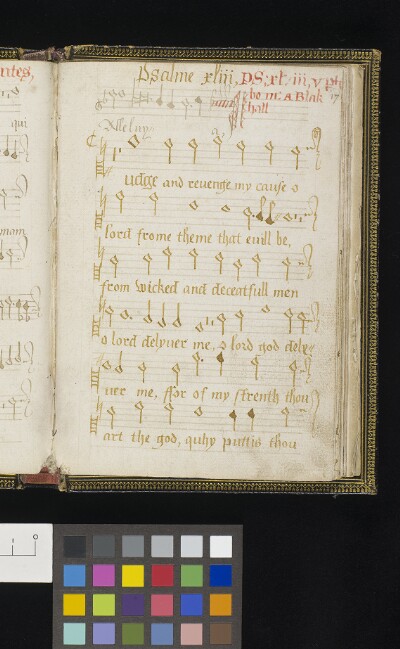 Psalme xliii, PS: xl: iii, v
bo mr A Blak
hall
udge and revenge my cause o
lord frome theme that evill be,
from wicked and deceatfull men
o lord delyuer me, o lord god dely=
uer me, ffor of my strenth thou
art the god, quhy puttis thou
qui